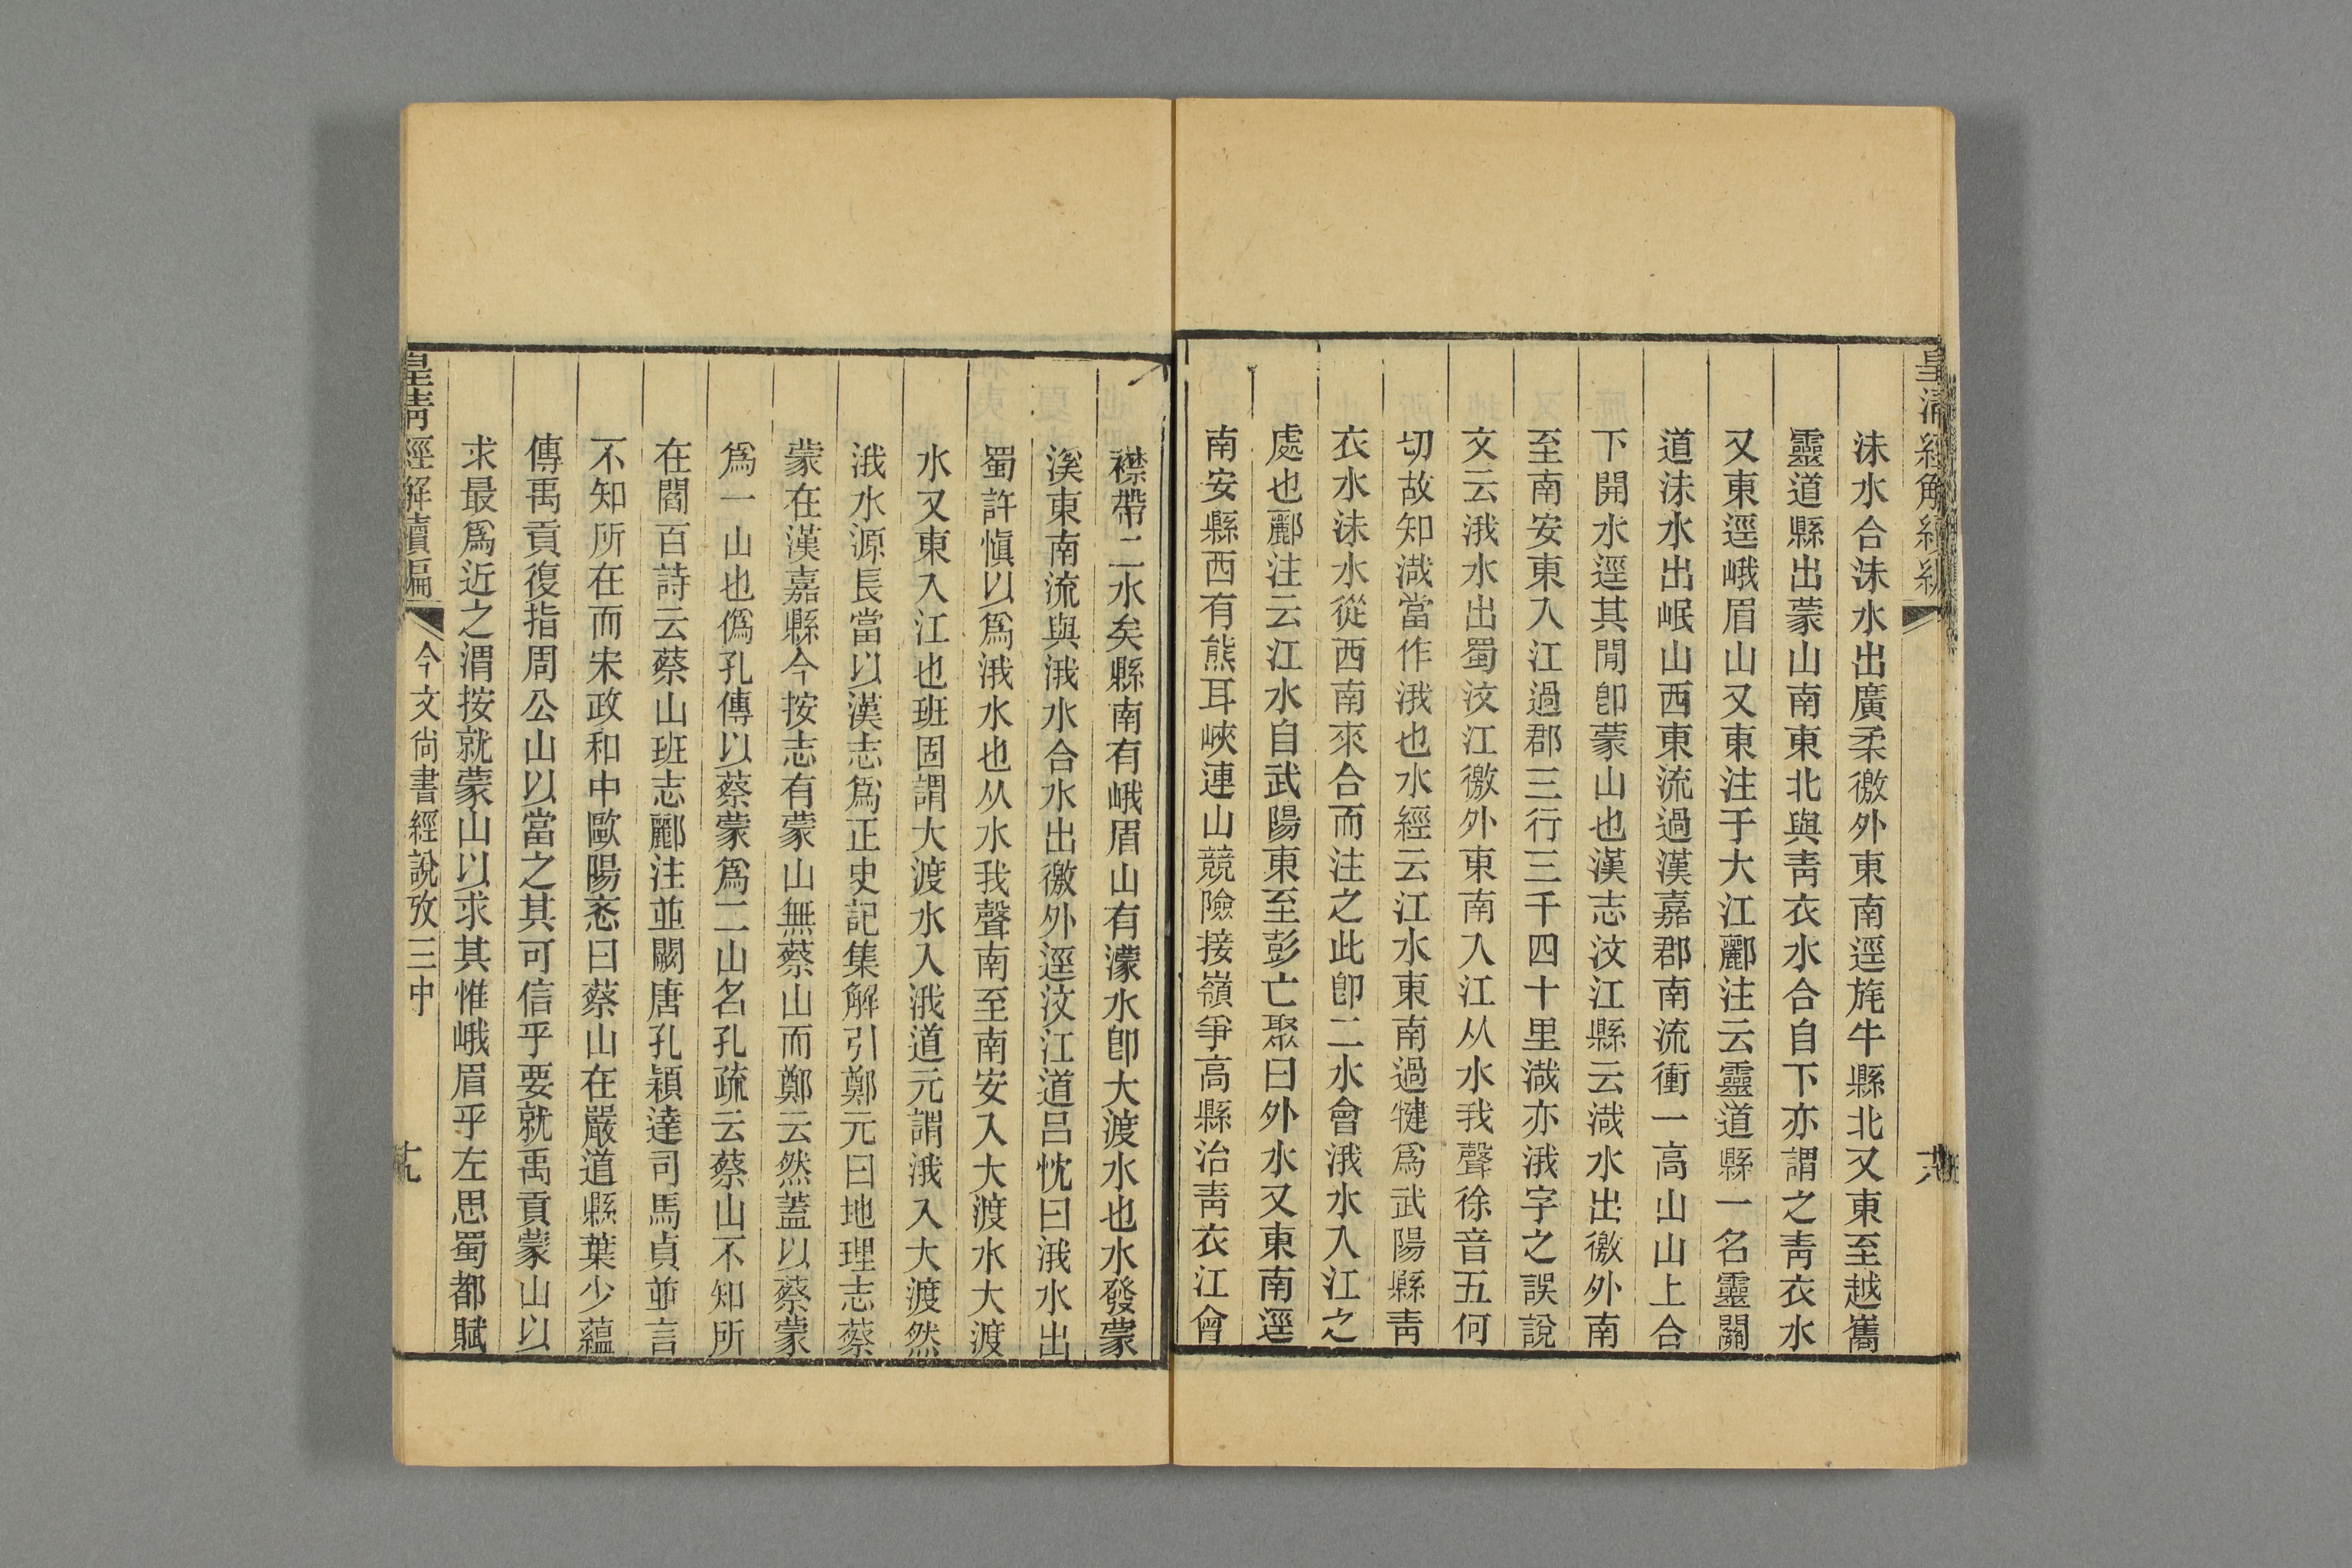 皇清經解續編
沬水合沬水出廣柔徼外東南逕旄牛縣北又東至越嶲
靈道縣出蒙山南東北與靑衣水合自下亦謂之靑衣水
又東逕峨眉山又東注于大江酈注云靈道縣一名靈關
道沬水出岷山西東流過漢嘉郡南流衝一高山山上合
下開水逕其閒卽蒙山也漢志汶江縣云渽水出徼外南
至南安東入江過郡三行三千四十里渽亦涐字之誤說
文云涐水出蜀汶江徼外東南入江从水我聲徐音五何
切故知渽當作涐也水經云江水東南過犍爲武陽縣靑
衣水沬水從西南來合而注之此卽二水會涐水入江之
處也酈注云江水自武陽東至彭亡聚曰外水又東南逕
南安縣西有熊耳峽連山競險接嶺爭高縣治靑衣江會
襟帶二水矣縣南有峨眉山有濛水卽大渡水也水發蒙
溪東南流與涐水合水出徼外逕汶江道呂忱曰涐水出
蜀許愼以爲涐水也从水我聲南至南安入大渡水大渡
水又東入江也班固謂大渡水入涐道元謂涐入大渡然
涐水源長當以漢志爲正史記集解引鄭元曰地理志蔡
蒙在漢嘉縣今按志有蒙山無蔡山而鄭云然蓋以蔡蒙
爲一山也僞孔傳以蔡蒙爲二山名孔疏云蔡山不知所
在閻百詩云蔡山班志酈注並闕唐孔穎達司馬貞並言
不知所在而宋政和中歐陽忞曰蔡山在嚴道縣葉少蘊
傳禹貢復指周公山以當之其可信乎要就禹貢蒙山以
求最爲近之渭按就蒙山以求其惟峨眉乎左思蜀都賦
皇淸經解續編 今文尙書經說攷三中